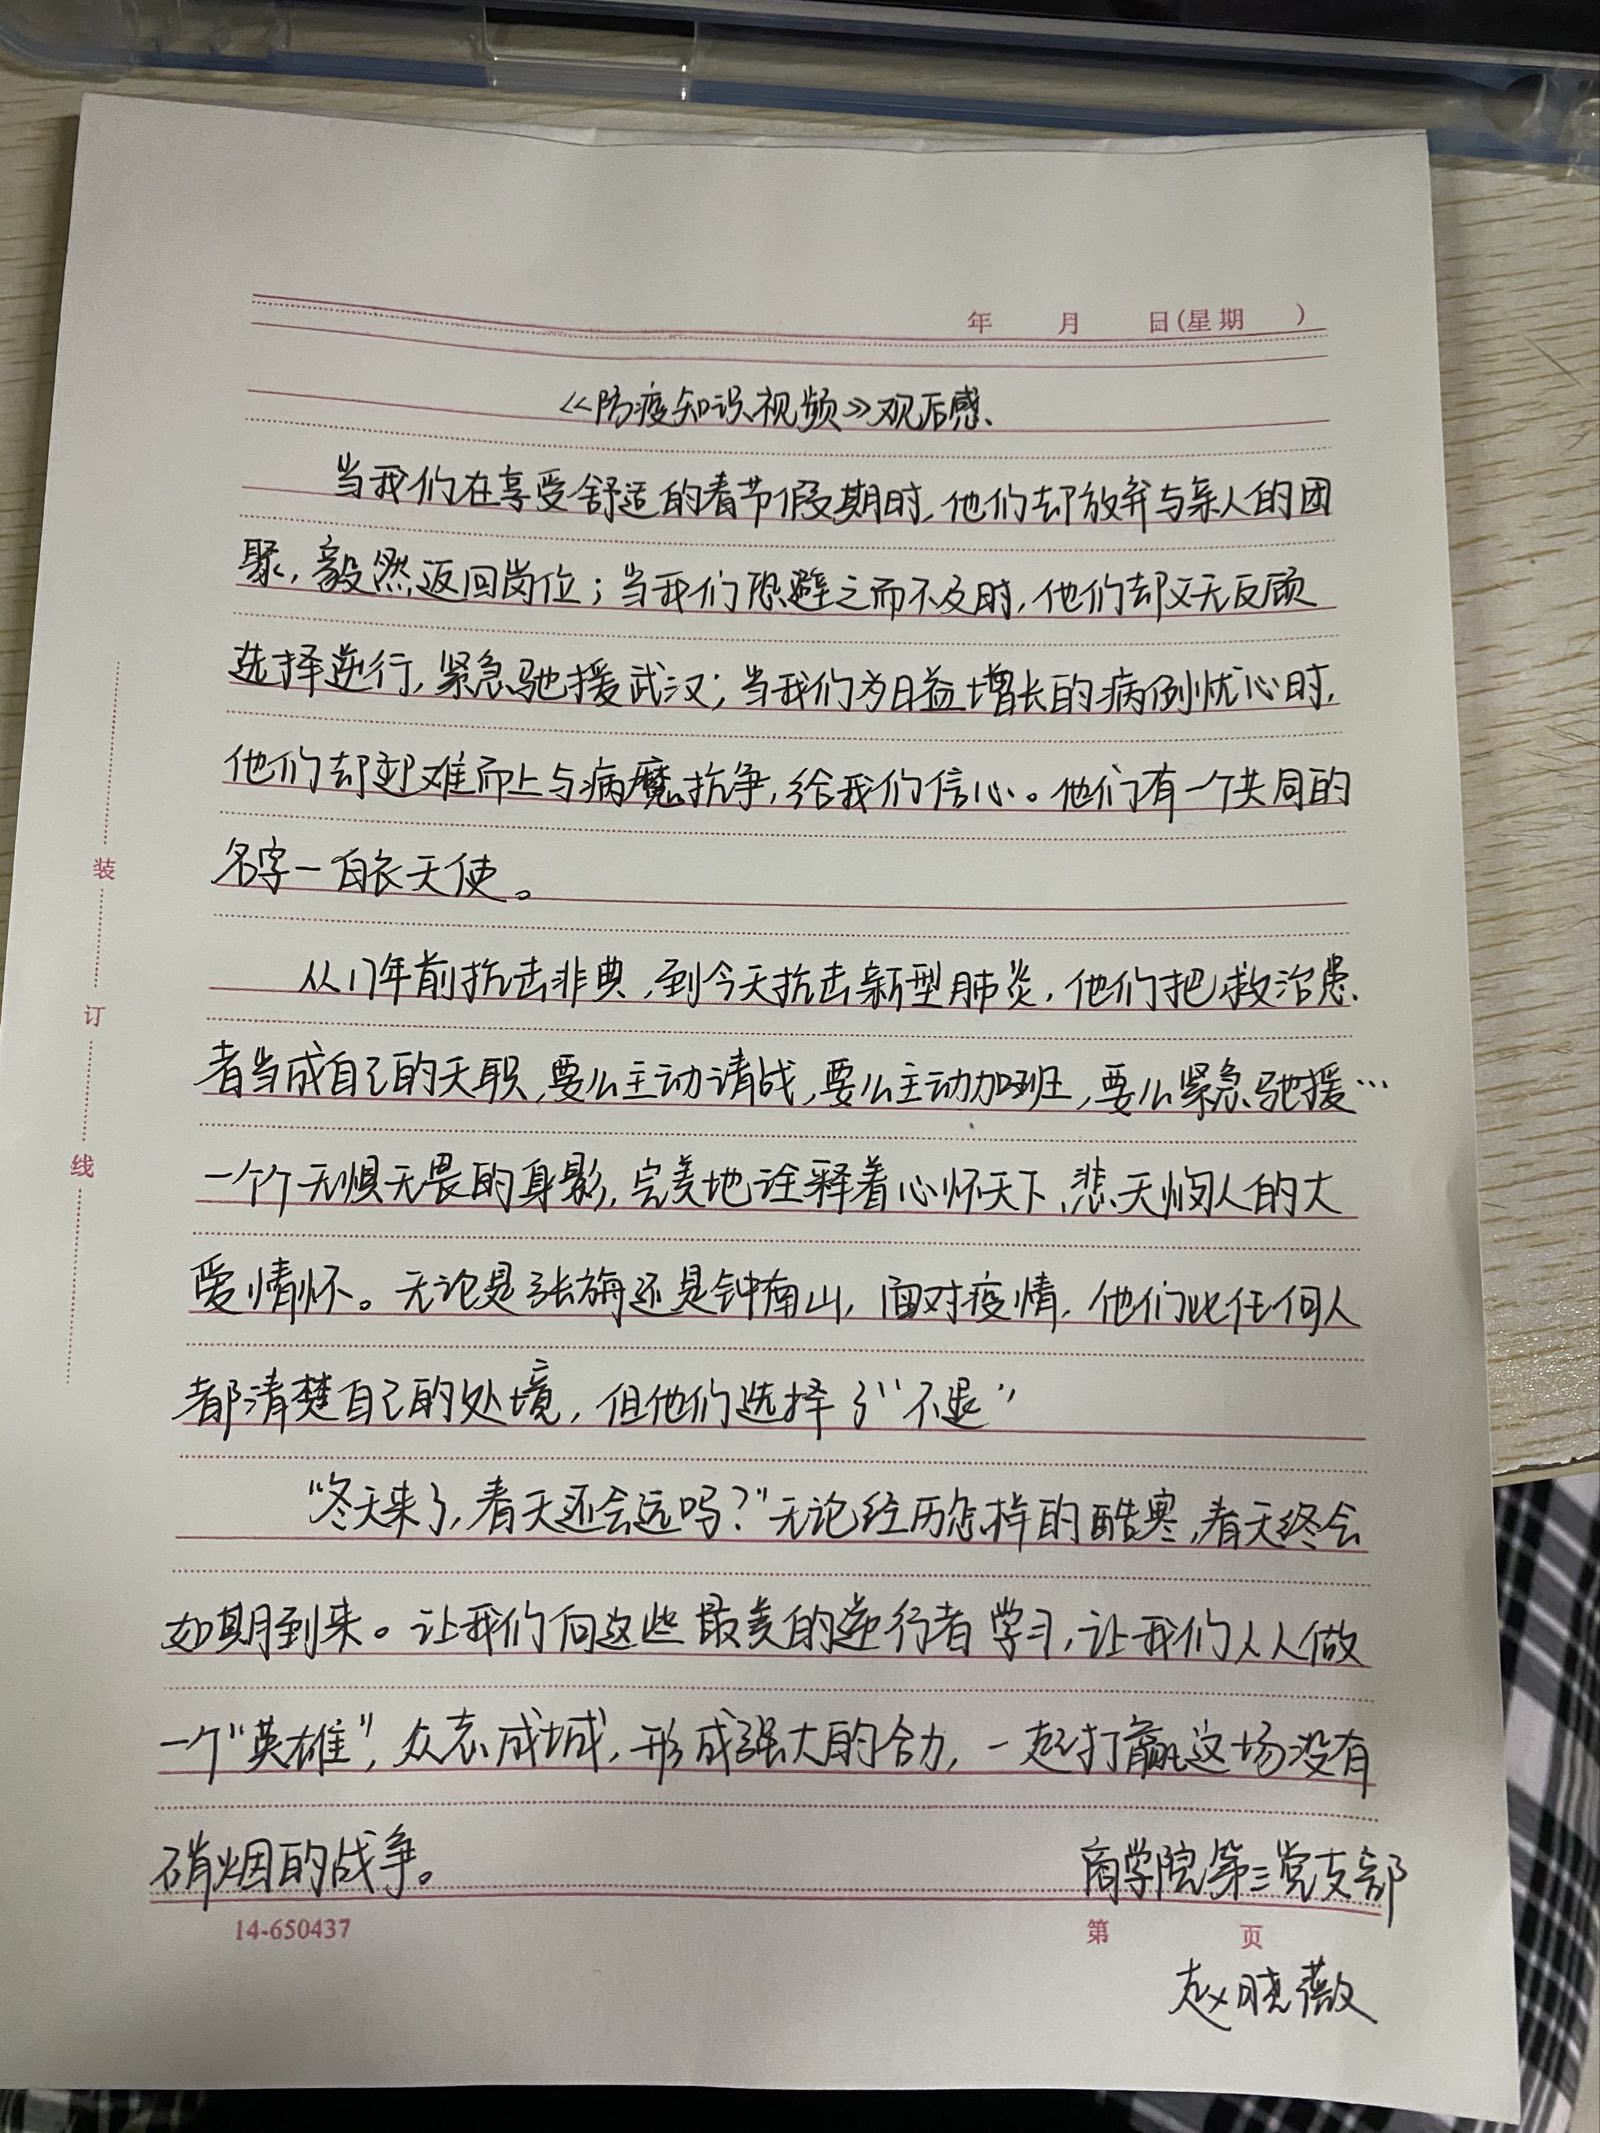 年 月 日(星期 )
《防疫知识视频》观后感
当我们在享受舒适的春节假期时,他们却放弃与亲人的团
聚,毅然返回岗位;当我们恐避之而不及时,他们却义无反顾
选择逆行,紧急驰援武汉;当我们为日益增长的病例忧心时,
他们却迎难而上与病魔抗争,给我们信心。他们有一个共同的
名字一白衣天使。
从17年前抗击非典,到今天抗击新型肺炎,他们把救治患
者当成自己的天职,要么主动请战,要么主动加班,要么紧急驰援…
一个个无惧无畏的身影,完美地诠释着心怀天下、悲天悯人的大
爱情怀。无论是张旃还是钟南山,面对疫情,他们比任何人
都清楚自己的处境,但他们选择了“不退”
“冬天来了,春天还会远吗?”无论经历怎样的酷寒,春天终会
如期到来。让我们向这些最美的逆行者学习,让我们人人做
一个“英雄”,众志成城,形成强大的合力,一起打赢这场没有
硝烟的战争。 商学院第三党支部
14-650437 第 页
赵晓薇
装
订
线